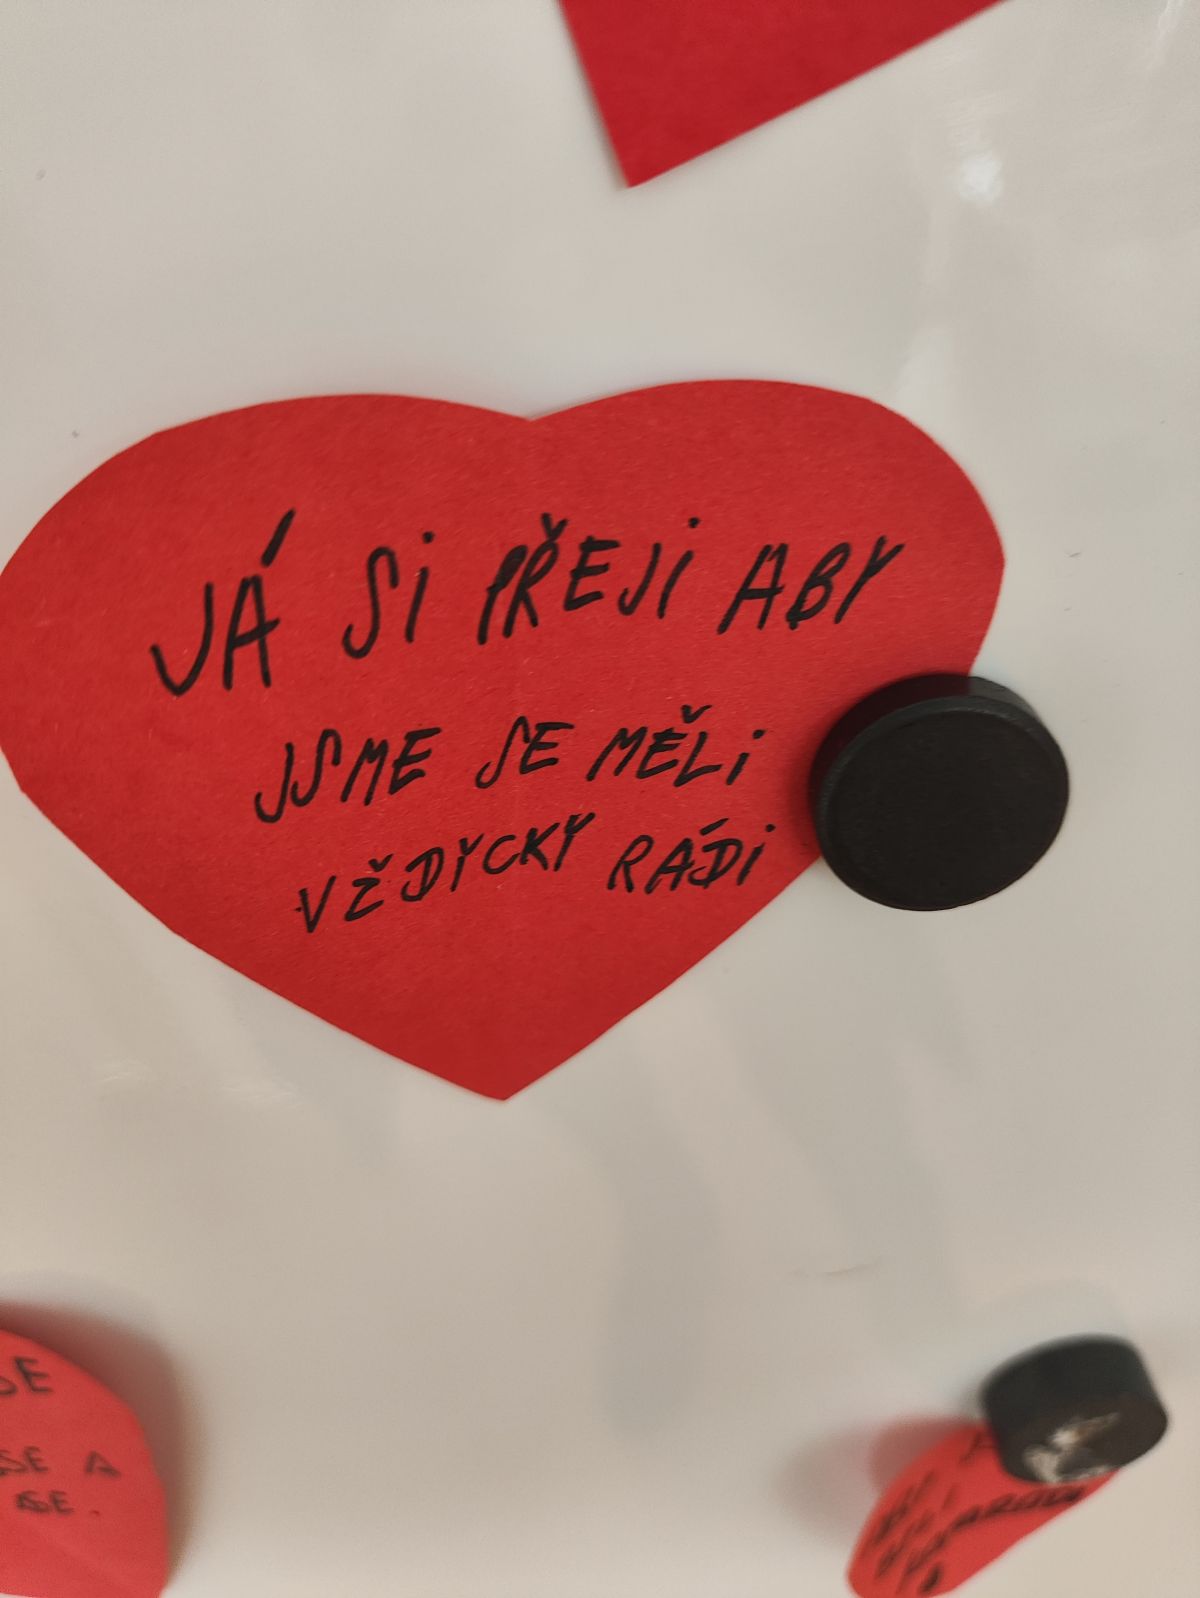 JÁ Si PŘEJi ABY
JSME SE MĚLi
VŽDYCKY RÁDi
SE
SE A
SE.